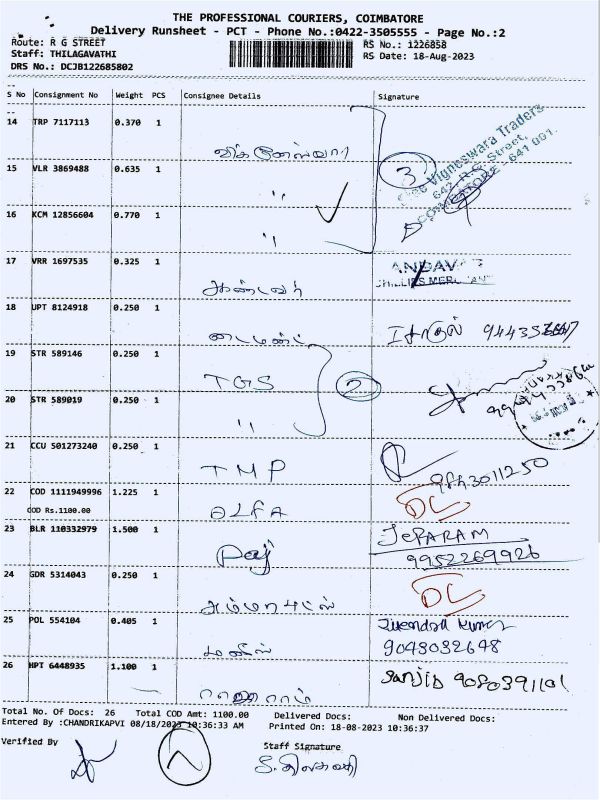 THE PROFESSIONAL COURIERS, COIMBATORE
Delivery Runsheet - PCT - Phone No.:0422-3505555 - Page No.:2
Route: R G STREET
RS No.: 1226858
Staff: THILAGAVATHI
RS Date: 18-Aug-2023
DRS No.: DCJB122685802
S No Consignment No Weight PCS Consignee Details Signature
14 TRP 7117113 0.370 1
Vigneswara Traders
R.G. Street,
COIMBATORE - 641 001.
15 VLR 3869488 0.635 1
3
"
16 KCM 12856604 0.770 1
"
17 VRR 1697535 0.325 1
18 UPT 8124918 0.250 1
19 STR 589146 0.250 1
TGS 2
20 STR 589019 0.250 1
"
21 CCU 501273240 0.250 1
TMP
22 COD 1111949996 1.225 1
COD Rs.1100.00
ALFA DL
23 BLR 110332979 1.500 1
JEPARAM
9952269926
24 GDR 5314043 0.250 1
DL
25 POL 554104 0.405 1
Kumar
9043032648
26 HPT 6448935 1.100 1
Total No. Of Docs: 26 Total COD Amt: 1100.00 Delivered Docs: Non Delivered Docs:
Entered By :CHANDRIKAPVI 08/18/2023 10:36:33 AM Printed On: 18-08-2023 10:36:37
Verified By
Staff Signature